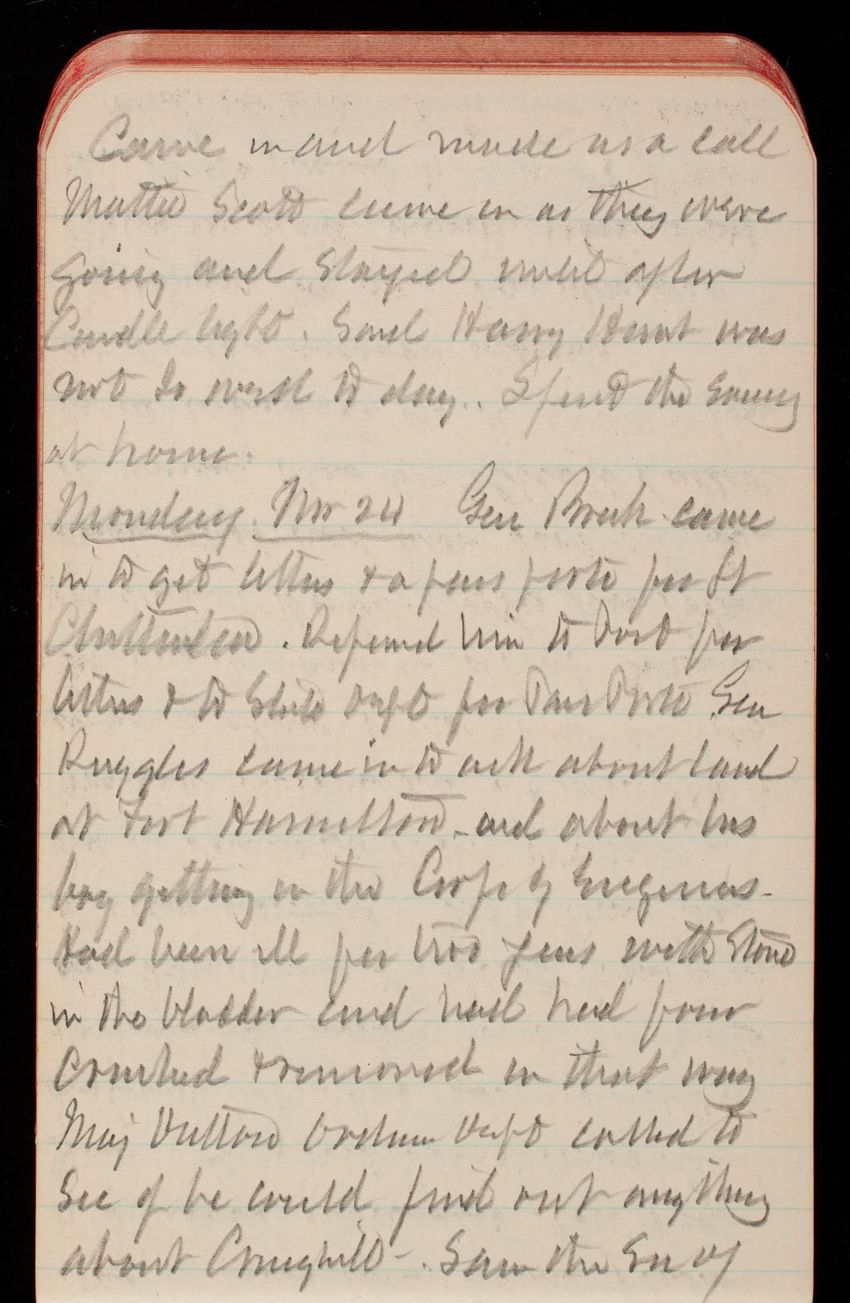 Came in and made us a call
Mattie Scott came in as they were
going and stayed until after
Candle light. Said Harry Hunt was
not so well to day. Spent the evening
at home.
Monday. Nov 24 Gen came
in to get letters & a pass port for St
. Refered him to Post for
letters & to State Dept for Pass Port Gen
Ruggles came in to ask about land
at Fort Hamilton and about his
boy getting in the Corps of Engineers.
Had been ill for two years with Stone
in the bladder and had had four
Crushed & removed in that way
Maj Dutton Ordnan Dept called to
see if he could find out anything
about Craighill. Saw the Sec of